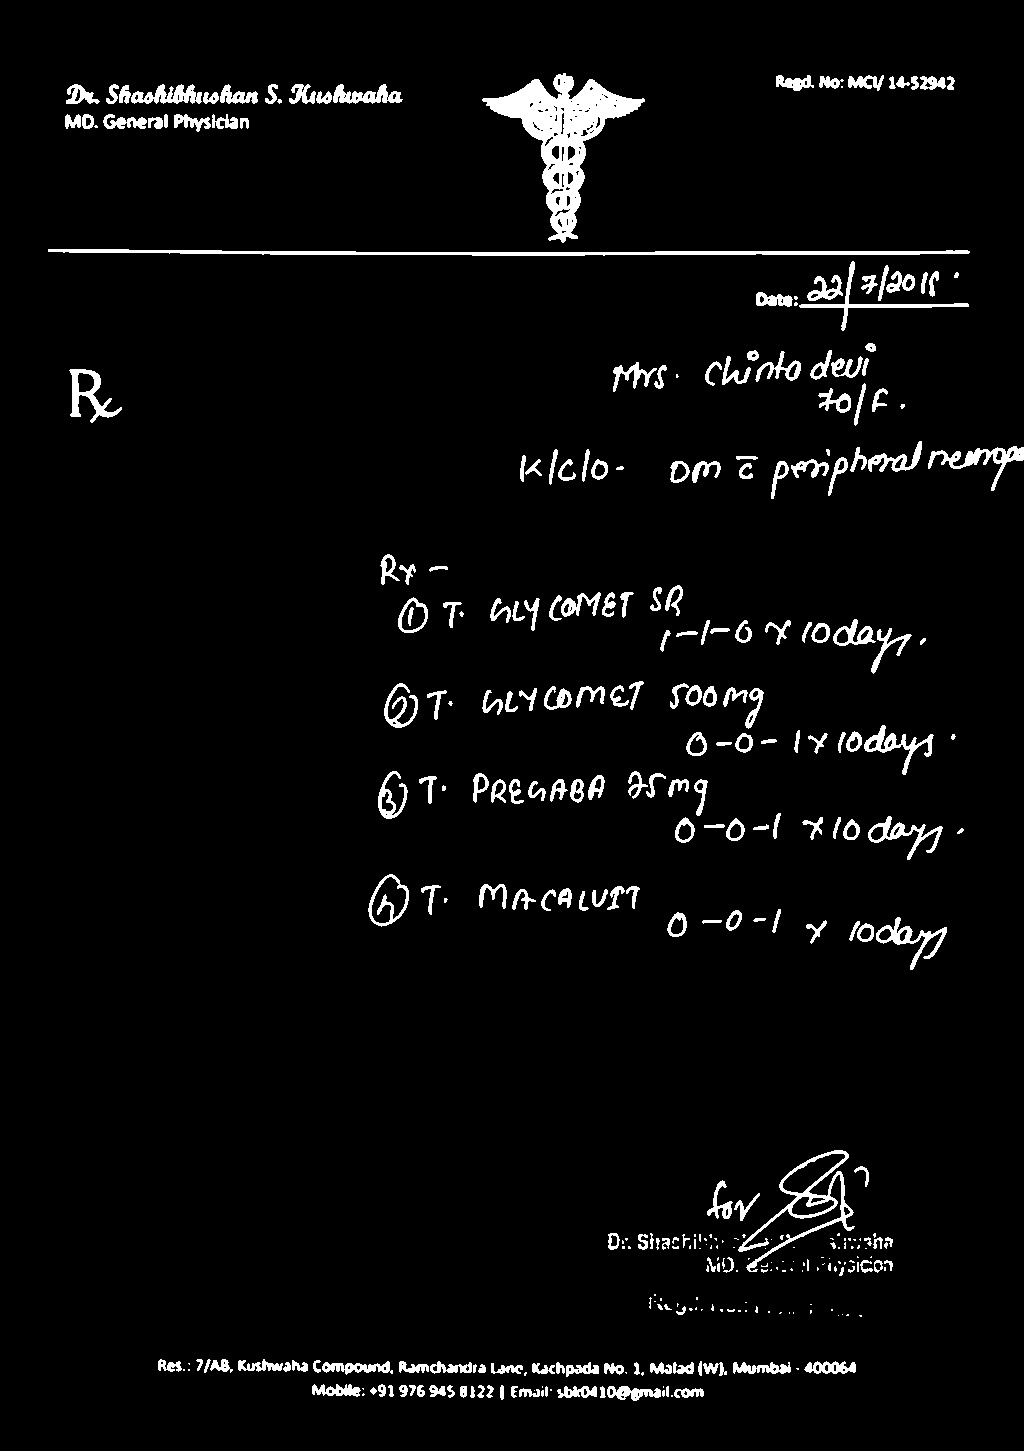 Dr. Shashibhushan S. Kushwaha
MD. General Physician
Regd. No: MCI/ 14-52942
Date: 22/7/2018
Rx
Mrs. Chinta devi
70/F.
K/c/o - DM c̄ peripheral neuropa
Rx -
① T. GLYCOMET SR
1-1-0 x 10 days.
② T. GLYCOMET 500mg
0-0-1 x 10 days.
③ T. PREGABA 25mg
0-0-1 x 10 days.
④ T. MACALVIT
0-0-1 x 10 days
for
Dr. Shashibhushan S. Kushwaha
MD. General Physician
Res.: 7/AB, Kushwaha Compound, Ramchandra Lane, Kachpada No. 1, Malad (W), Mumbai - 400064
Mobile: +91 976 945 8122 | Email: sbk0410@gmail.com